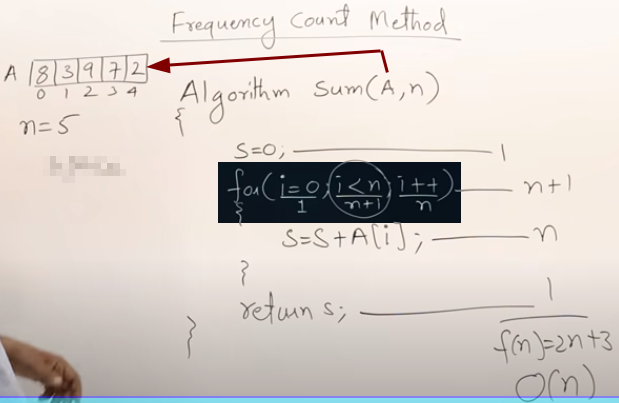 Frequency Count Method
A 8 3 9 7 2
0 1 2 3 4
n=5
Algorithm Sum(A,n)
{
S=0; 1
for(i=0; i<n; i++) n+1
1 n+1 n
{
S=S+A[i]; n
}
return s; 1
}
f(n)=2n+3
O(n)